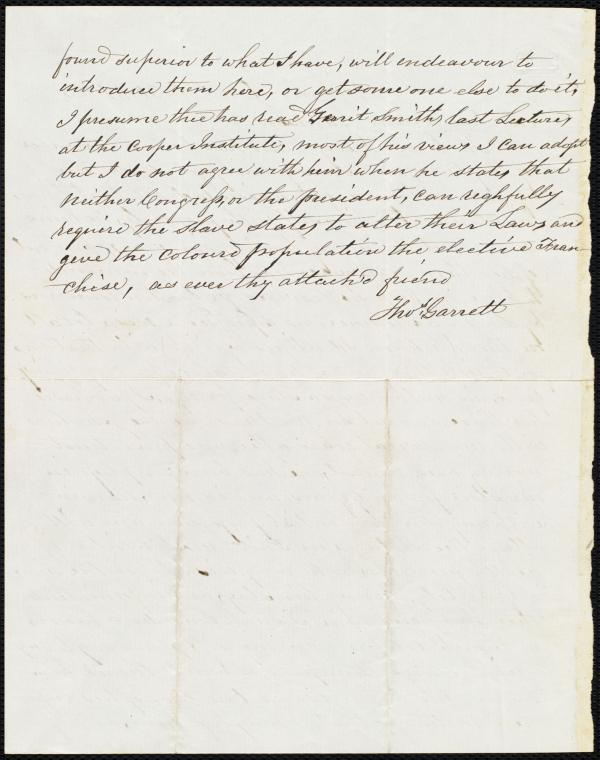 found superior to what I have, will endeavour to
introduce them here, or get some one else to do it,
I presume thee has read Gerrit Smiths last Lecture,
at the Cooper Institute, most of his views I can adopt
but I do not agree with him when he states that
neither Congress, or the president, can reghfully
require the slave States to alter their Laws and
give the coloured propulation the elective Fran
chise, as ever thy attach'd friend
Thos. Garrett